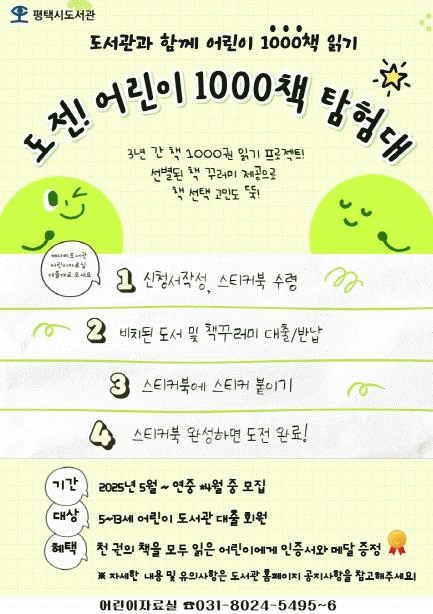 평택시도서관
도서관과 함께 어린이 1000책 읽기
도전! 어린이 1000책 탐험대
3년 간 책 1000권 읽기 프로젝트!
선별된 책 꾸러미 제공으로
책 선택 고민도 뚝!
배다리도서관
어린이자료실
대출데스크로 오세요
1 신청서작성, 스티커북 수령
2 비치된 도서 및 책꾸러미 대출/반납
3 스티커북에 스티커 붙이기
4 스티커북 완성하면 도전 완료!
기간 2025년 5월 ~ 연중 *4월 중 모집
대상 5~13세 어린이 도서관 대출 회원
혜택 천 권의 책을 모두 읽은 어린이에게 인증서와 메달 증정
※ 자세한 내용 및 유의사항은 도서관 홈페이지 공지사항을 참고해주세요!
어린이자료실 ☎031-8024-5495~6